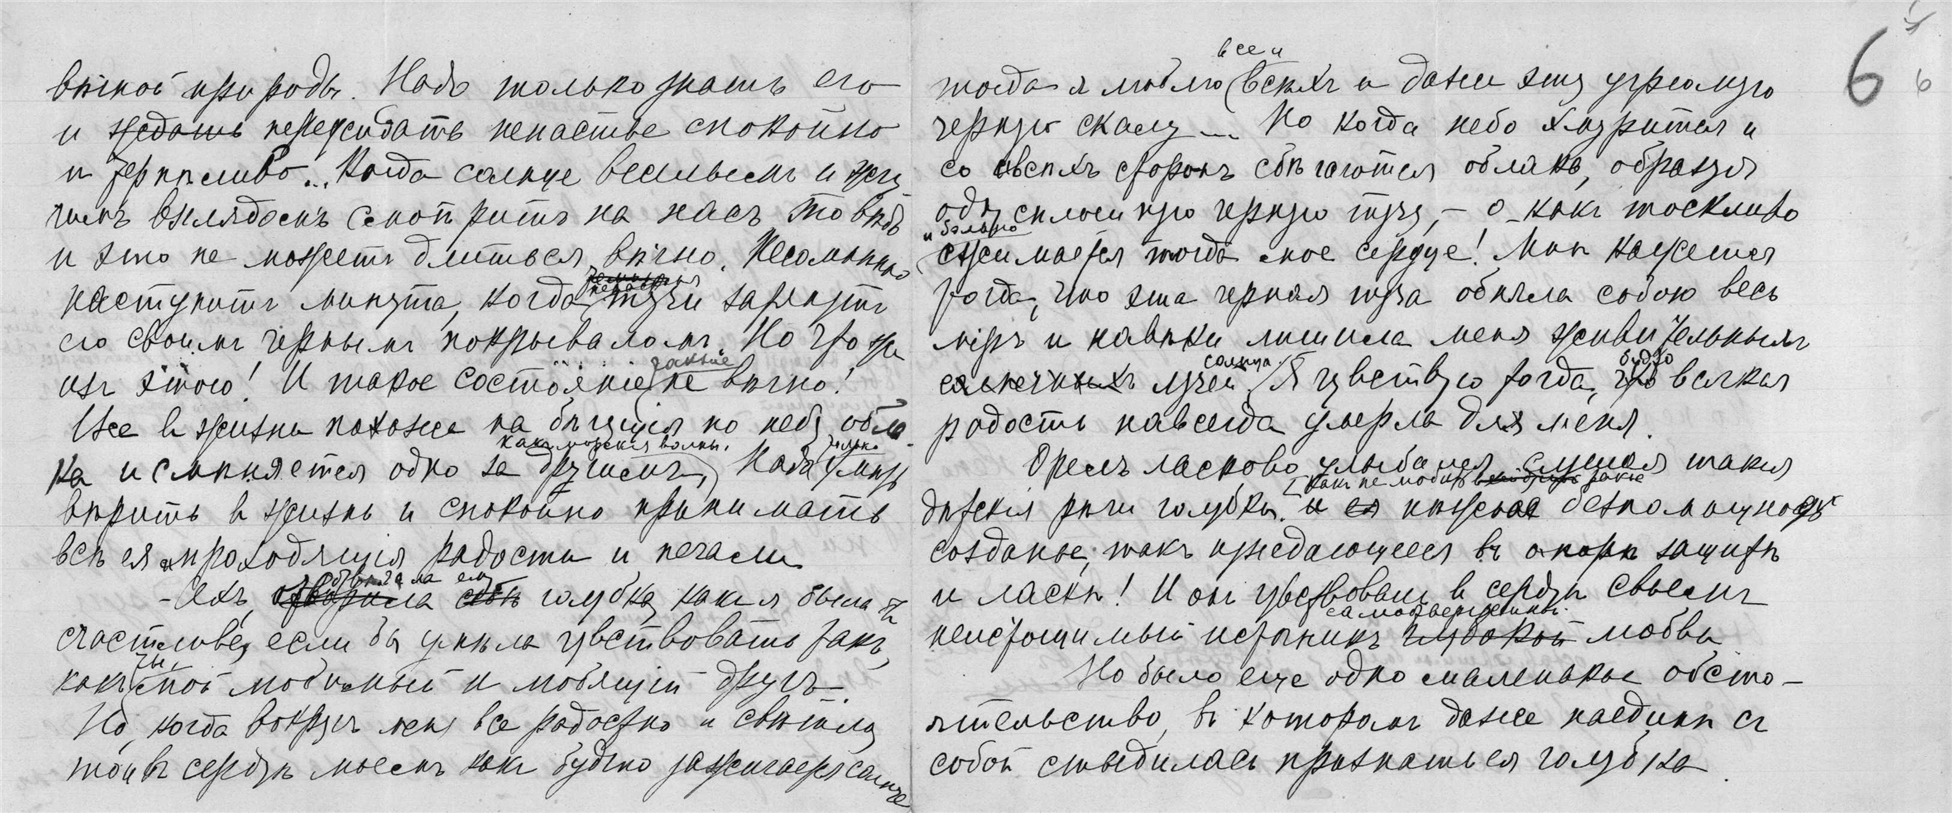 вѣчной природы. Надо только знать его
и ждать пережидать ненастье спокойно
и терпѣливо... Когда солнце веселымъ и жгу
чимъ взглядомъ смотритъ на насъ то вѣдь
и это не можетъ длиться вѣчно. Несомнѣнно
наступитъ минута, когда тучи затянутъ
его своимъ чернымъ покрываломъ. Но что же
изъ этого! И такое состоянiе также не вѣчно!
Все въ жизни похоже на бѣгущiя по небу обла-
какъ морскiя волны.
ка и смѣняется одно за другимъ, Надо только
вѣрить въ жизнь и спокойно принимать
всѣ ея проходящiя радости и печали
отвѣчала ему
- Ахъ, голубка, какъ я была бы
счастлива, если бы умѣла чувствовать такъ,
какъ ты, мой любимый и любящiй другъ.
Но, когда вокругъ меня все радостно и свѣтло,
то и въ сердцѣ моемъ какъ будто зажигается солнце
6
всеи
тогда я люблю всѣхъ и даже эту угрюмую
черную скалу... Но когда небо хмурится и
со всѣхъ сторонъ сбѣгаются облака, образуя
одну сплошную черную тучу, - о, какъ тоскливо
и больно
сжимается тогда мое сердце! Мнѣ кажется
тогда, что эта черная туча обняла собою весь
мiръ и навѣки лишила меня живительныхъ
солнечныхъ лучей солнца. Я чувствую тогда, что будто всякая
радость навсегда умерла для меня.
Орелъ ласково улыбался, слушая такiя
дѣтскiя рѣчи голубки. и ея нѣжное безпомощное
созданье, такъ нуждающееся въ опорѣ защитѣ
и ласкѣ! И он чувствовалъ въ сердцѣ своемъ
самоотверженной
неистощимый источникъ глубокой любви
Но было еще одно маленькое обсто-
ятельство, въ которомъ даже наединѣ съ
собой стыдилась признаться голубка.